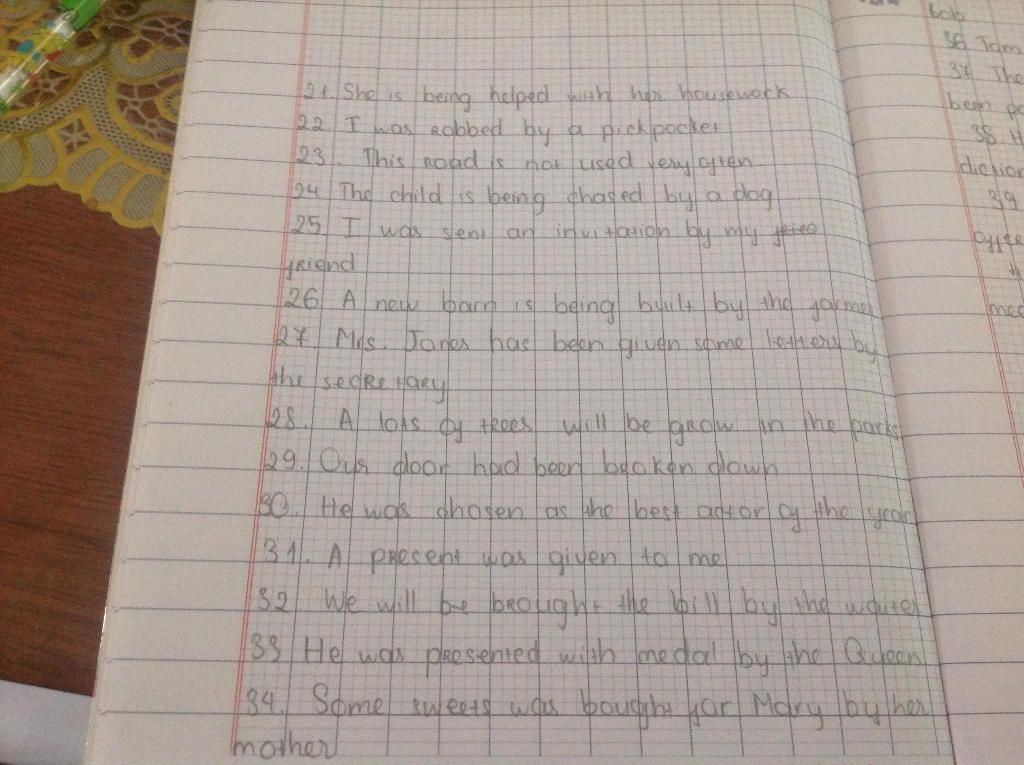 21. She is being helped with her housework
22. I was robbed by a pickpocket
23. This road is not used very often.
24 The child is being chased by a dog
25. I was sent an invitation by my
friend
26. A new barn is being built by the farmer
27. Mrs. Jones has been given some letters by
the secretary
28. A lots of trees will be grow in the parks
29. Our door had been broken down
30. He was chosen as the best actor of the year
31. A present was given to me
32 We will be brought the bill by the waiter
33 He was presented with medal by the Queen
34. Some sweets was bought for Mary by her
mother
bob
36. Tom
37. The
been
38. H
39